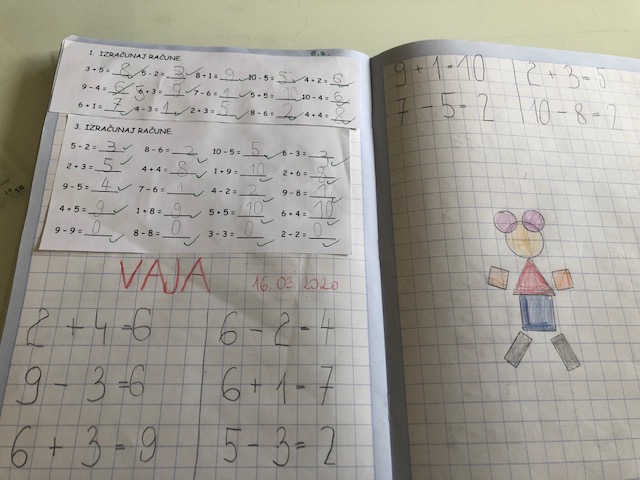 1. IZRAČUNAJ RAČUNE. 8.3.
3 + 5 = 8 5 - 2 = 3 8 + 1 = 9 10 - 5 = 5 4 + 2 = 6
9 - 4 = 6 + 3 = 9 7 - 6 = 1 5 + 5 = 10 10 - 4 = 6
6 + 1 = 7 4 - 3 = 1 2 + 3 = 5 8 - 6 = 2 4 + 4 = 8
3. IZRAČUNAJ RAČUNE.
5 - 2 = 3 8 - 6 = 2 10 - 5 = 5 6 - 3 = 3
2 + 3 = 5 4 + 4 = 8 1 + 9 = 10 2 + 6 = 8
9 - 5 = 4 7 - 6 = 1 4 - 2 = 2 9 - 8 = 1
4 + 5 = 9 1 + 8 = 9 5 + 5 = 10 6 + 4 = 10
9 - 9 = 0 8 - 8 = 0 3 - 3 = 0 2 - 2 = 0
VAJA 16.03.2020
2 + 4 = 6 6 - 2 = 4
9 - 3 = 6 6 + 1 = 7
6 + 3 = 9 5 - 3 = 2
9 + 1 = 10 2 + 3 = 5
7 - 5 = 2 10 - 8 = 2